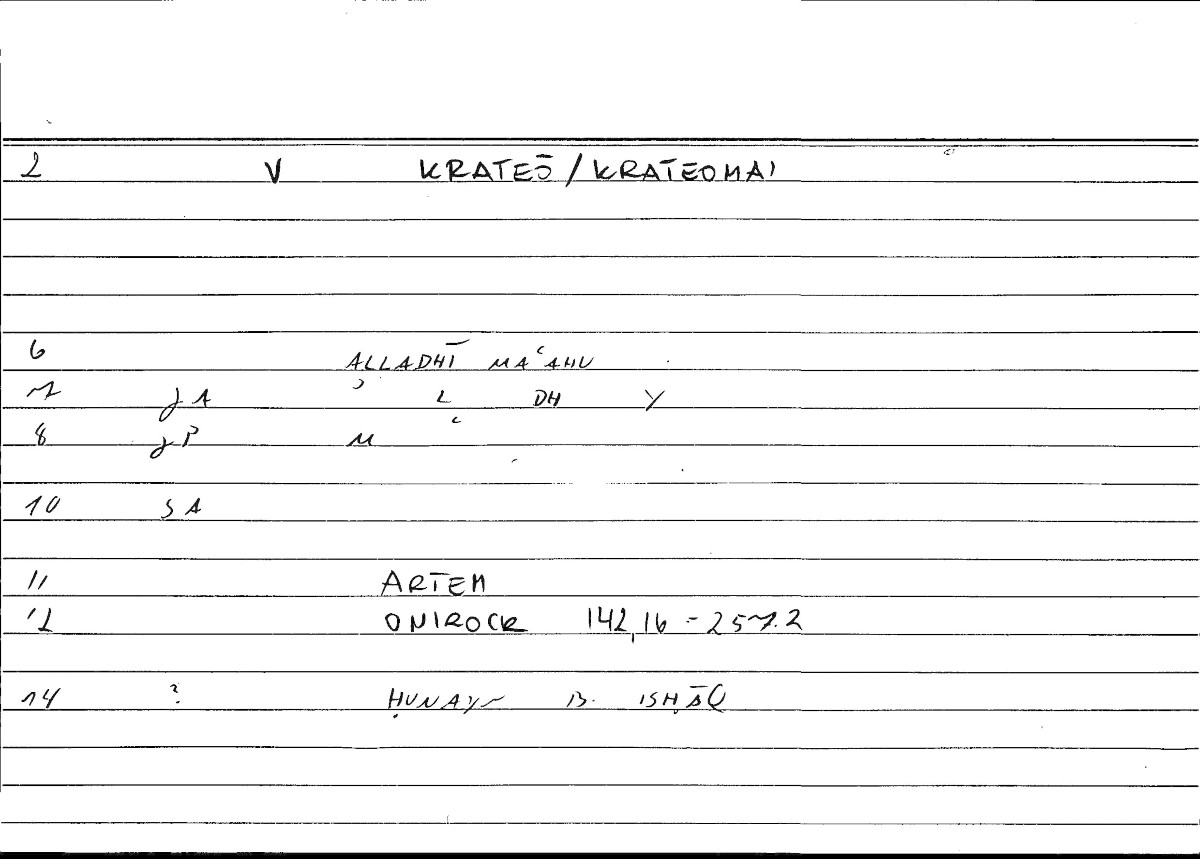 2 V KRATEŌ / KRATEOMAI
6 ALLADHĪ MAʿAHU
7 JA ʾ L DH Y
8 JP M ʿ
10 SA
11 ARTEM
12 ONIROCR 142,16 = 257.2
14 ? ḤUNAYN B. ISḤĀQ